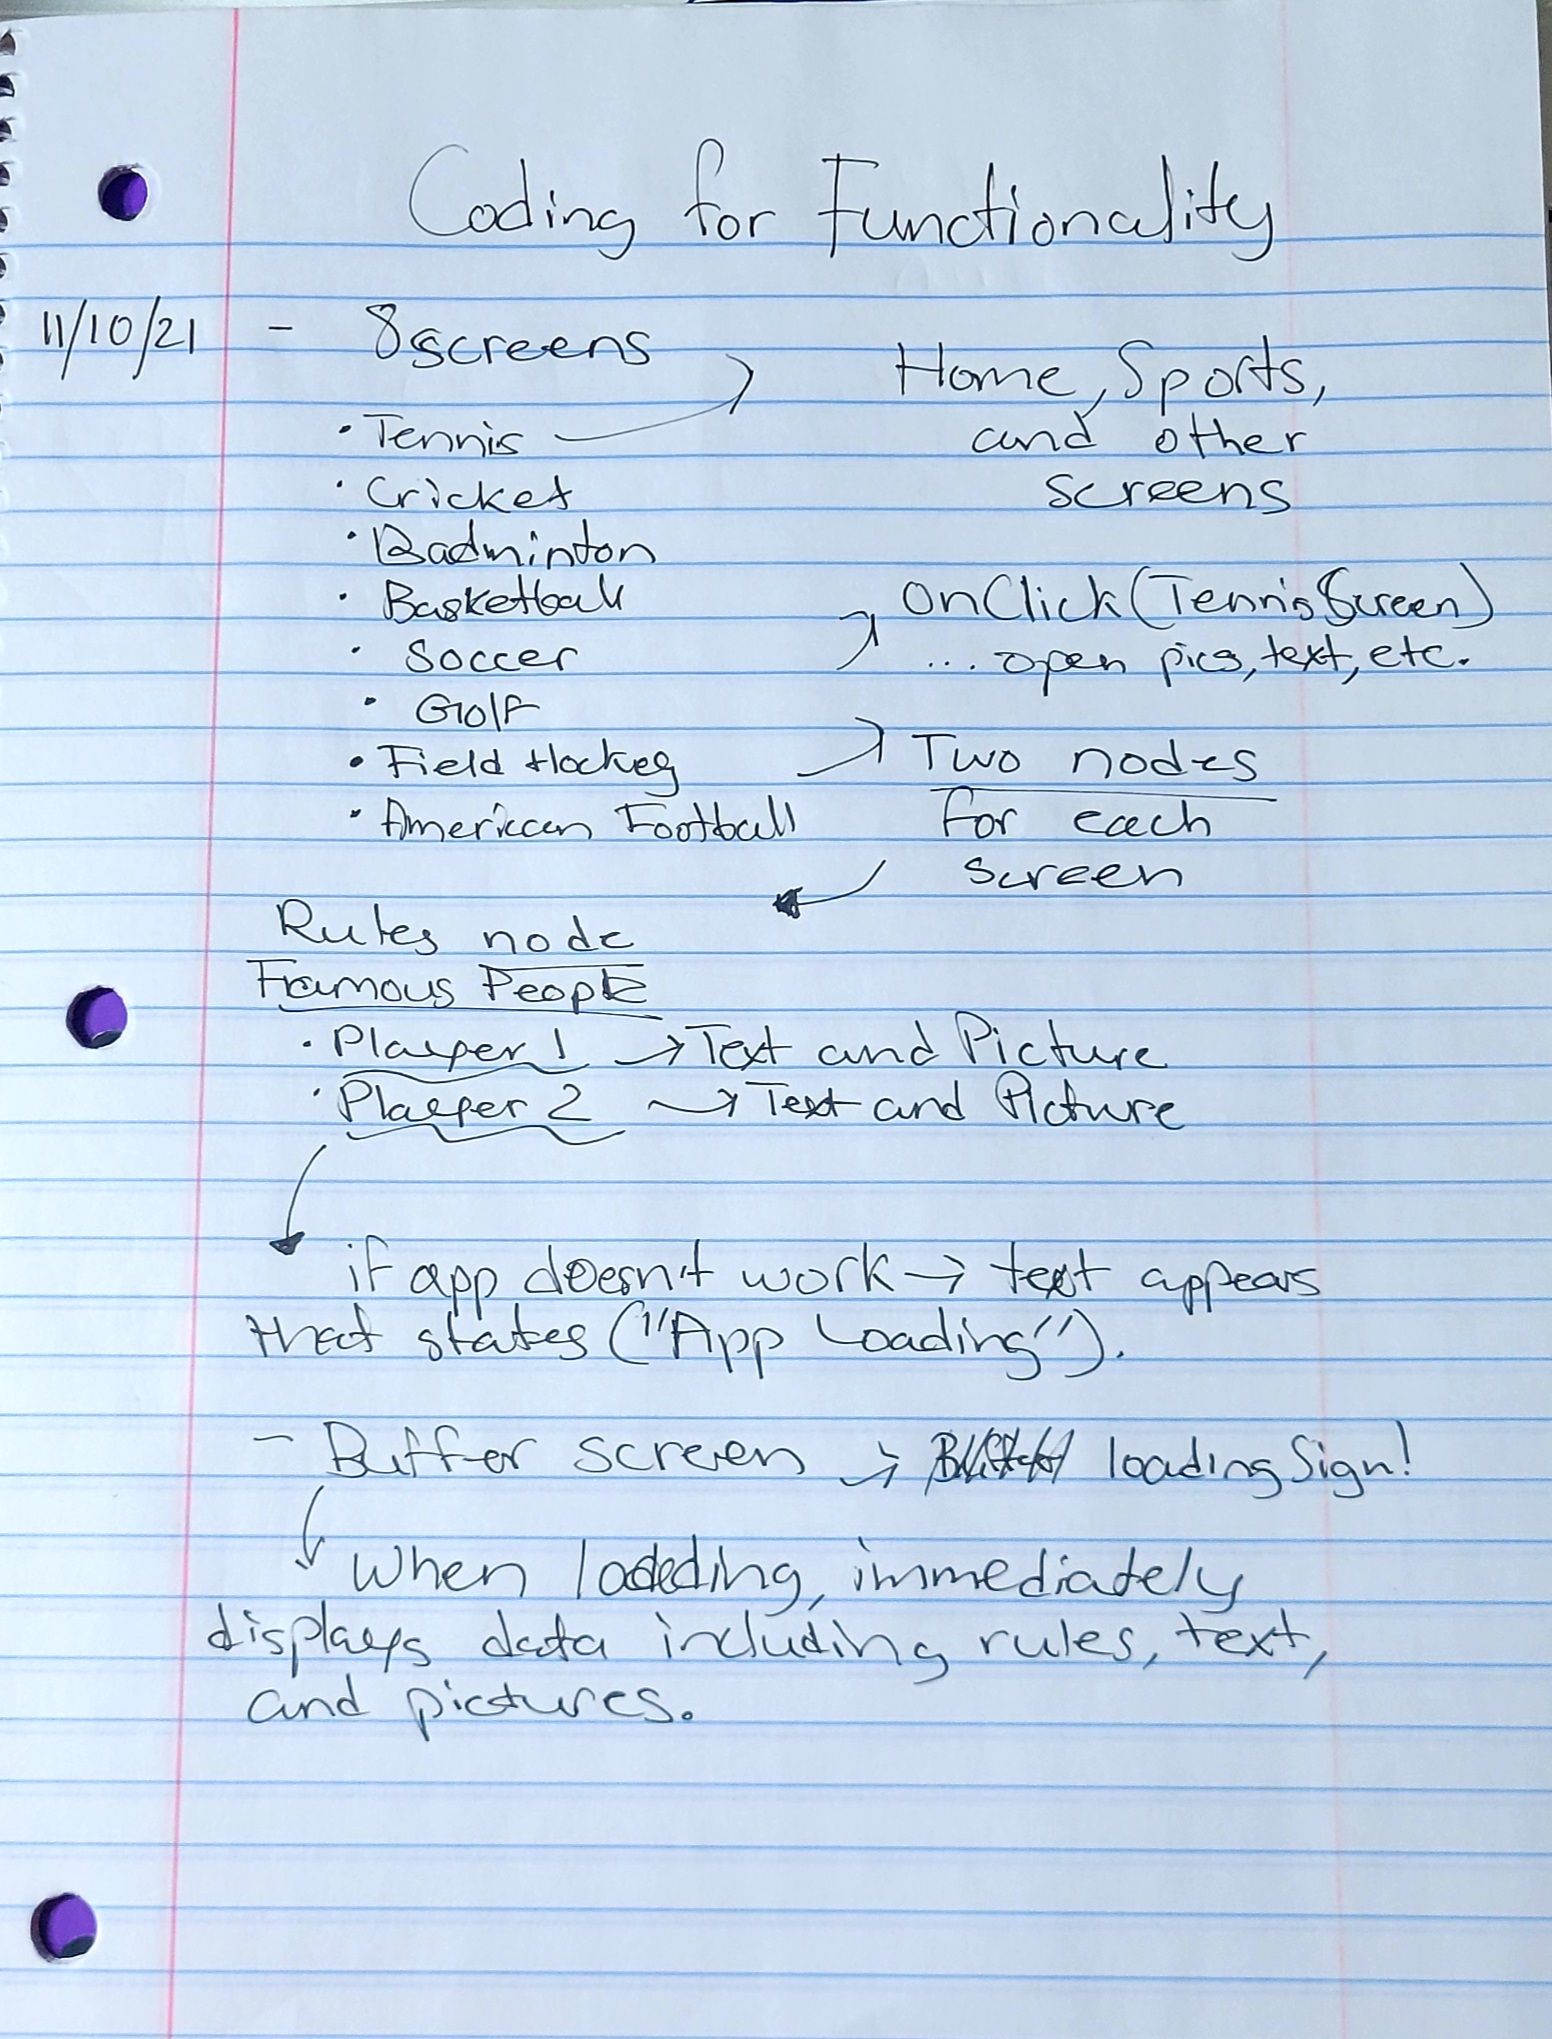 Coding for Functionality
11/10/21 - 8 screens
• Tennis
• Cricket
• Badminton
• Basketball
• Soccer
• Golf
• Field Hockey
• American Football
Home, Sports,
and other
screens
OnClick(Tennis Screen)
... open pics, text, etc.
Two nodes
for each
screen
Rules node
Famous People
• Player 1 → Text and Picture
• Player 2 → Text and Picture
if app doesn't work → text appears
that states ("App Loading").
- Buffer screen → loading Sign!
When loading, immediately
displays data including rules, text,
and pictures.